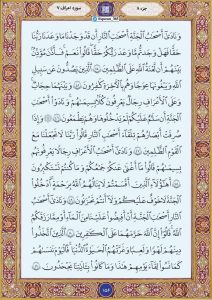 جزء ۸
سوره اعراف ۷
وَنَادَىٰٓ أَصْحَٰبُ ٱلْجَنَّةِ أَصْحَٰبَ ٱلنَّارِ أَن قَدْ وَجَدْنَا مَا وَعَدَنَا رَبُّنَا
حَقًّا فَهَلْ وَجَدتُّم مَّا وَعَدَ رَبُّكُمْ حَقًّا قَالُوا۟ نَعَمْ فَأَذَّنَ مُؤَذِّنٌۢ
بَيْنَهُمْ أَن لَّعْنَةُ ٱللَّهِ عَلَى ٱلظَّٰلِمِينَ ٤٤ ٱلَّذِينَ يَصُدُّونَ عَن سَبِيلِ
ٱللَّهِ وَيَبْغُونَهَا عِوَجًا وَهُم بِٱلْءَاخِرَةِ كَٰفِرُونَ ٤٥ وَبَيْنَهُمَا حِجَابٌ
وَعَلَى ٱلْأَعْرَافِ رِجَالٌ يَعْرِفُونَ كُلًّۢا بِسِيمَىٰهُمْ وَنَادَوْا۟ أَصْحَٰبَ
ٱلْجَنَّةِ أَن سَلَٰمٌ عَلَيْكُمْ لَمْ يَدْخُلُوهَا وَهُمْ يَطْمَعُونَ ٤٦ وَإِذَا
صُرِفَتْ أَبْصَٰرُهُمْ تِلْقَآءَ أَصْحَٰبِ ٱلنَّارِ قَالُوا۟ رَبَّنَا لَا تَجْعَلْنَا مَعَ
ٱلْقَوْمِ ٱلظَّٰلِمِينَ ٤٧ وَنَادَىٰٓ أَصْحَٰبُ ٱلْأَعْرَافِ رِجَالًا يَعْرِفُونَهُم
بِسِيمَىٰهُمْ قَالُوا۟ مَآ أَغْنَىٰ عَنكُمْ جَمْعُكُمْ وَمَا كُنتُمْ تَسْتَكْبِرُونَ
٤٨ أَهَٰٓؤُلَآءِ ٱلَّذِينَ أَقْسَمْتُمْ لَا يَنَالُهُمُ ٱللَّهُ بِرَحْمَةٍ ٱدْخُلُوا۟
ٱلْجَنَّةَ لَا خَوْفٌ عَلَيْكُمْ وَلَآ أَنتُمْ تَحْزَنُونَ ٤٩ وَنَادَىٰٓ أَصْحَٰبُ
ٱلنَّارِ أَصْحَٰبَ ٱلْجَنَّةِ أَنْ أَفِيضُوا۟ عَلَيْنَا مِنَ ٱلْمَآءِ أَوْ مِمَّا رَزَقَكُمُ
ٱللَّهُ قَالُوٓا۟ إِنَّ ٱللَّهَ حَرَّمَهُمَا عَلَى ٱلْكَٰفِرِينَ ٥٠ ٱلَّذِينَ ٱتَّخَذُوا۟
دِينَهُمْ لَهْوًا وَلَعِبًا وَغَرَّتْهُمُ ٱلْحَيَوٰةُ ٱلدُّنْيَا فَٱلْيَوْمَ نَنسَىٰهُمْ
كَمَا نَسُوا۟ لِقَآءَ يَوْمِهِمْ هَٰذَا وَمَا كَانُوا۟ بِـَٔايَٰتِنَا يَجْحَدُونَ ٥١
۱۵۶